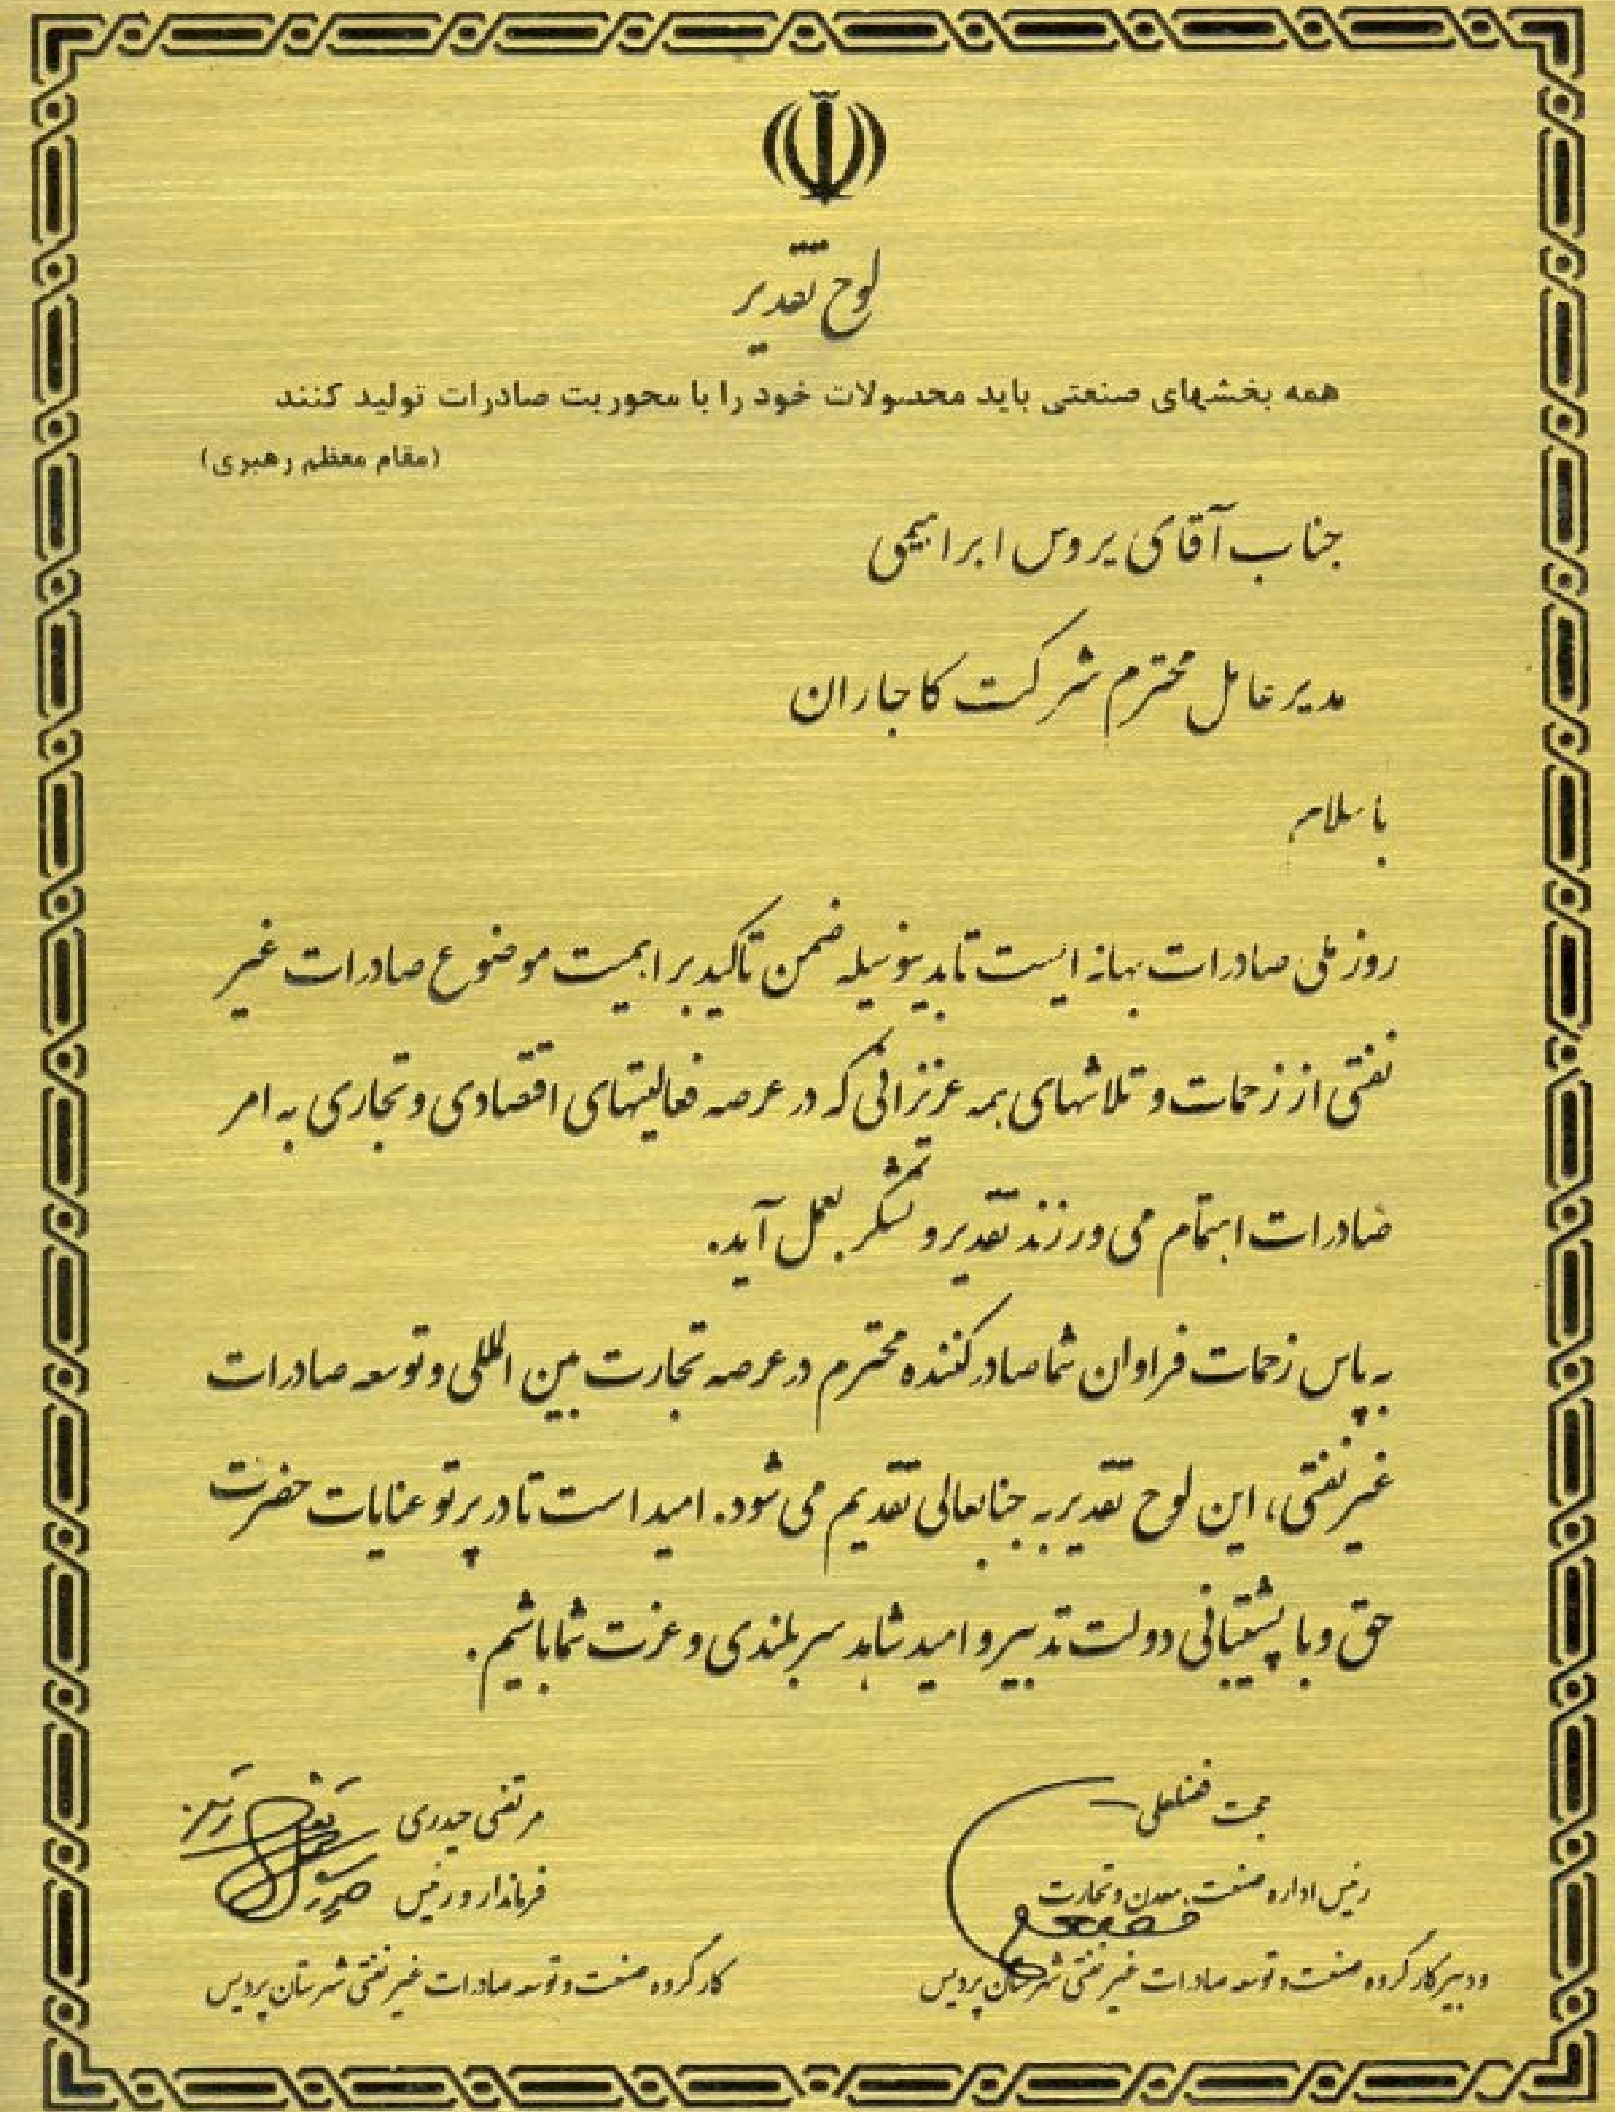 لوح تقدیر
همه بخشهای صنعتی باید محصولات خود را با محوریت صادرات تولید کنند
(مقام معظم رهبری)
جناب آقای یروس ابراهیمی
مدیر عامل محترم شرکت کاجاران
با سلام
روز ملی صادرات بهانه ایست تا بدینوسیله ضمن تاکید بر اهمیت موضوع صادرات غیر
نفتی از زحمات و تلاشهای همه عزیزانی که در عرصه فعالیتهای اقتصادی و تجاری به امر
صادرات اهتمام می ورزند تقدیر و تشکر بعمل آید.
به پاس زحمات فراوان شما صادر کننده محترم در عرصه تجارت بین المللی و توسعه صادرات
غیر نفتی، این لوح تقدیر به جنابعالی تقدیم می شود. امید است تا در پرتو عنایات حضرت
حق و با پشتیبانی دولت تدبیر و امید شاهد سربلندی و عزت شما باشیم.
حجت فضلعلی
رئیس اداره صنعت، معدن و تجارت
و دبیر کارگروه صنعت و توسعه صادرات غیر نفتی شهرستان پردیس
مرتضی حیدری
فرماندار و رئیس
کارگروه صنعت و توسعه صادرات غیر نفتی شهرستان پردیس